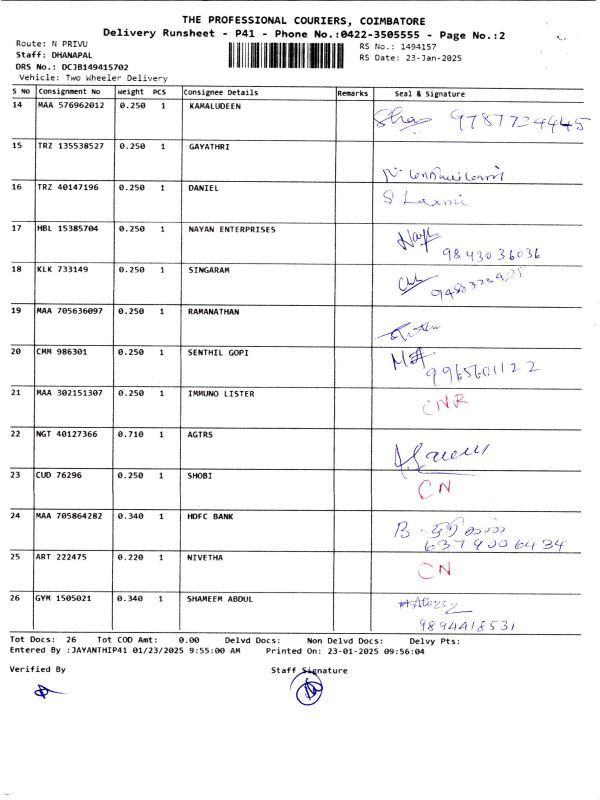 THE PROFESSIONAL COURIERS, COIMBATORE
Delivery Runsheet - P41 - Phone No.:0422-3505555 - Page No.:2
Route: N PRIVU
RS No.: 1494157
Staff: DHANAPAL
RS Date: 23-Jan-2025
DRS No.: DCJB149415702
Vehicle: Two Wheeler Delivery
S No Consignment No Weight PCS Consignee Details Remarks Seal & Signature
14 MAA 576962012 0.250 1 KAMALUDEEN 9787724445
15 TRZ 135538527 0.250 1 GAYATHRI
16 TRZ 40147196 0.250 1 DANIEL S Laxmi
17 HBL 15385704 0.250 1 NAYAN ENTERPRISES
9843036036
18 KLK 733149 0.250 1 SINGARAM
19 MAA 705636097 0.250 1 RAMANATHAN
20 CMM 986301 0.250 1 SENTHIL GOPI
9965601122
21 MAA 302151307 0.250 1 IMMUNO LISTER CNR
22 NGT 40127366 0.710 1 AGTRS
23 CUD 76296 0.250 1 SHOBI CN
24 MAA 705864282 0.340 1 HDFC BANK
6379006434
25 ART 222475 0.220 1 NIVETHA CN
26 GYM 1505021 0.340 1 SHAMEEM ABDUL
9894418531
Tot Docs: 26 Tot COD Amt: 0.00 Delvd Docs: Non Delvd Docs: Delvy Pts:
Entered By :JAYANTHIP41 01/23/2025 9:55:00 AM Printed On: 23-01-2025 09:56:04
Verified By Staff Signature